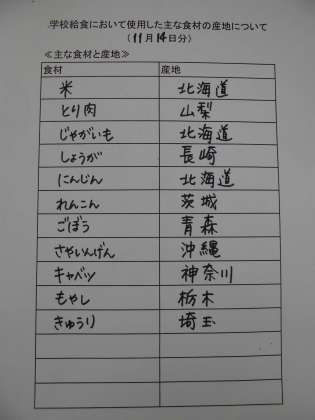 学校給食において使用した主な食材の産地について
（11月14日分）
≪主な食材と産地≫
食材 産地
米 北海道
とり肉 山梨
じゃがいも 北海道
しょうが 長崎
にんじん 北海道
れんこん 茨城
ごぼう 青森
さやいんげん 沖縄
キャベツ 神奈川
もやし 栃木
きゅうり 埼玉